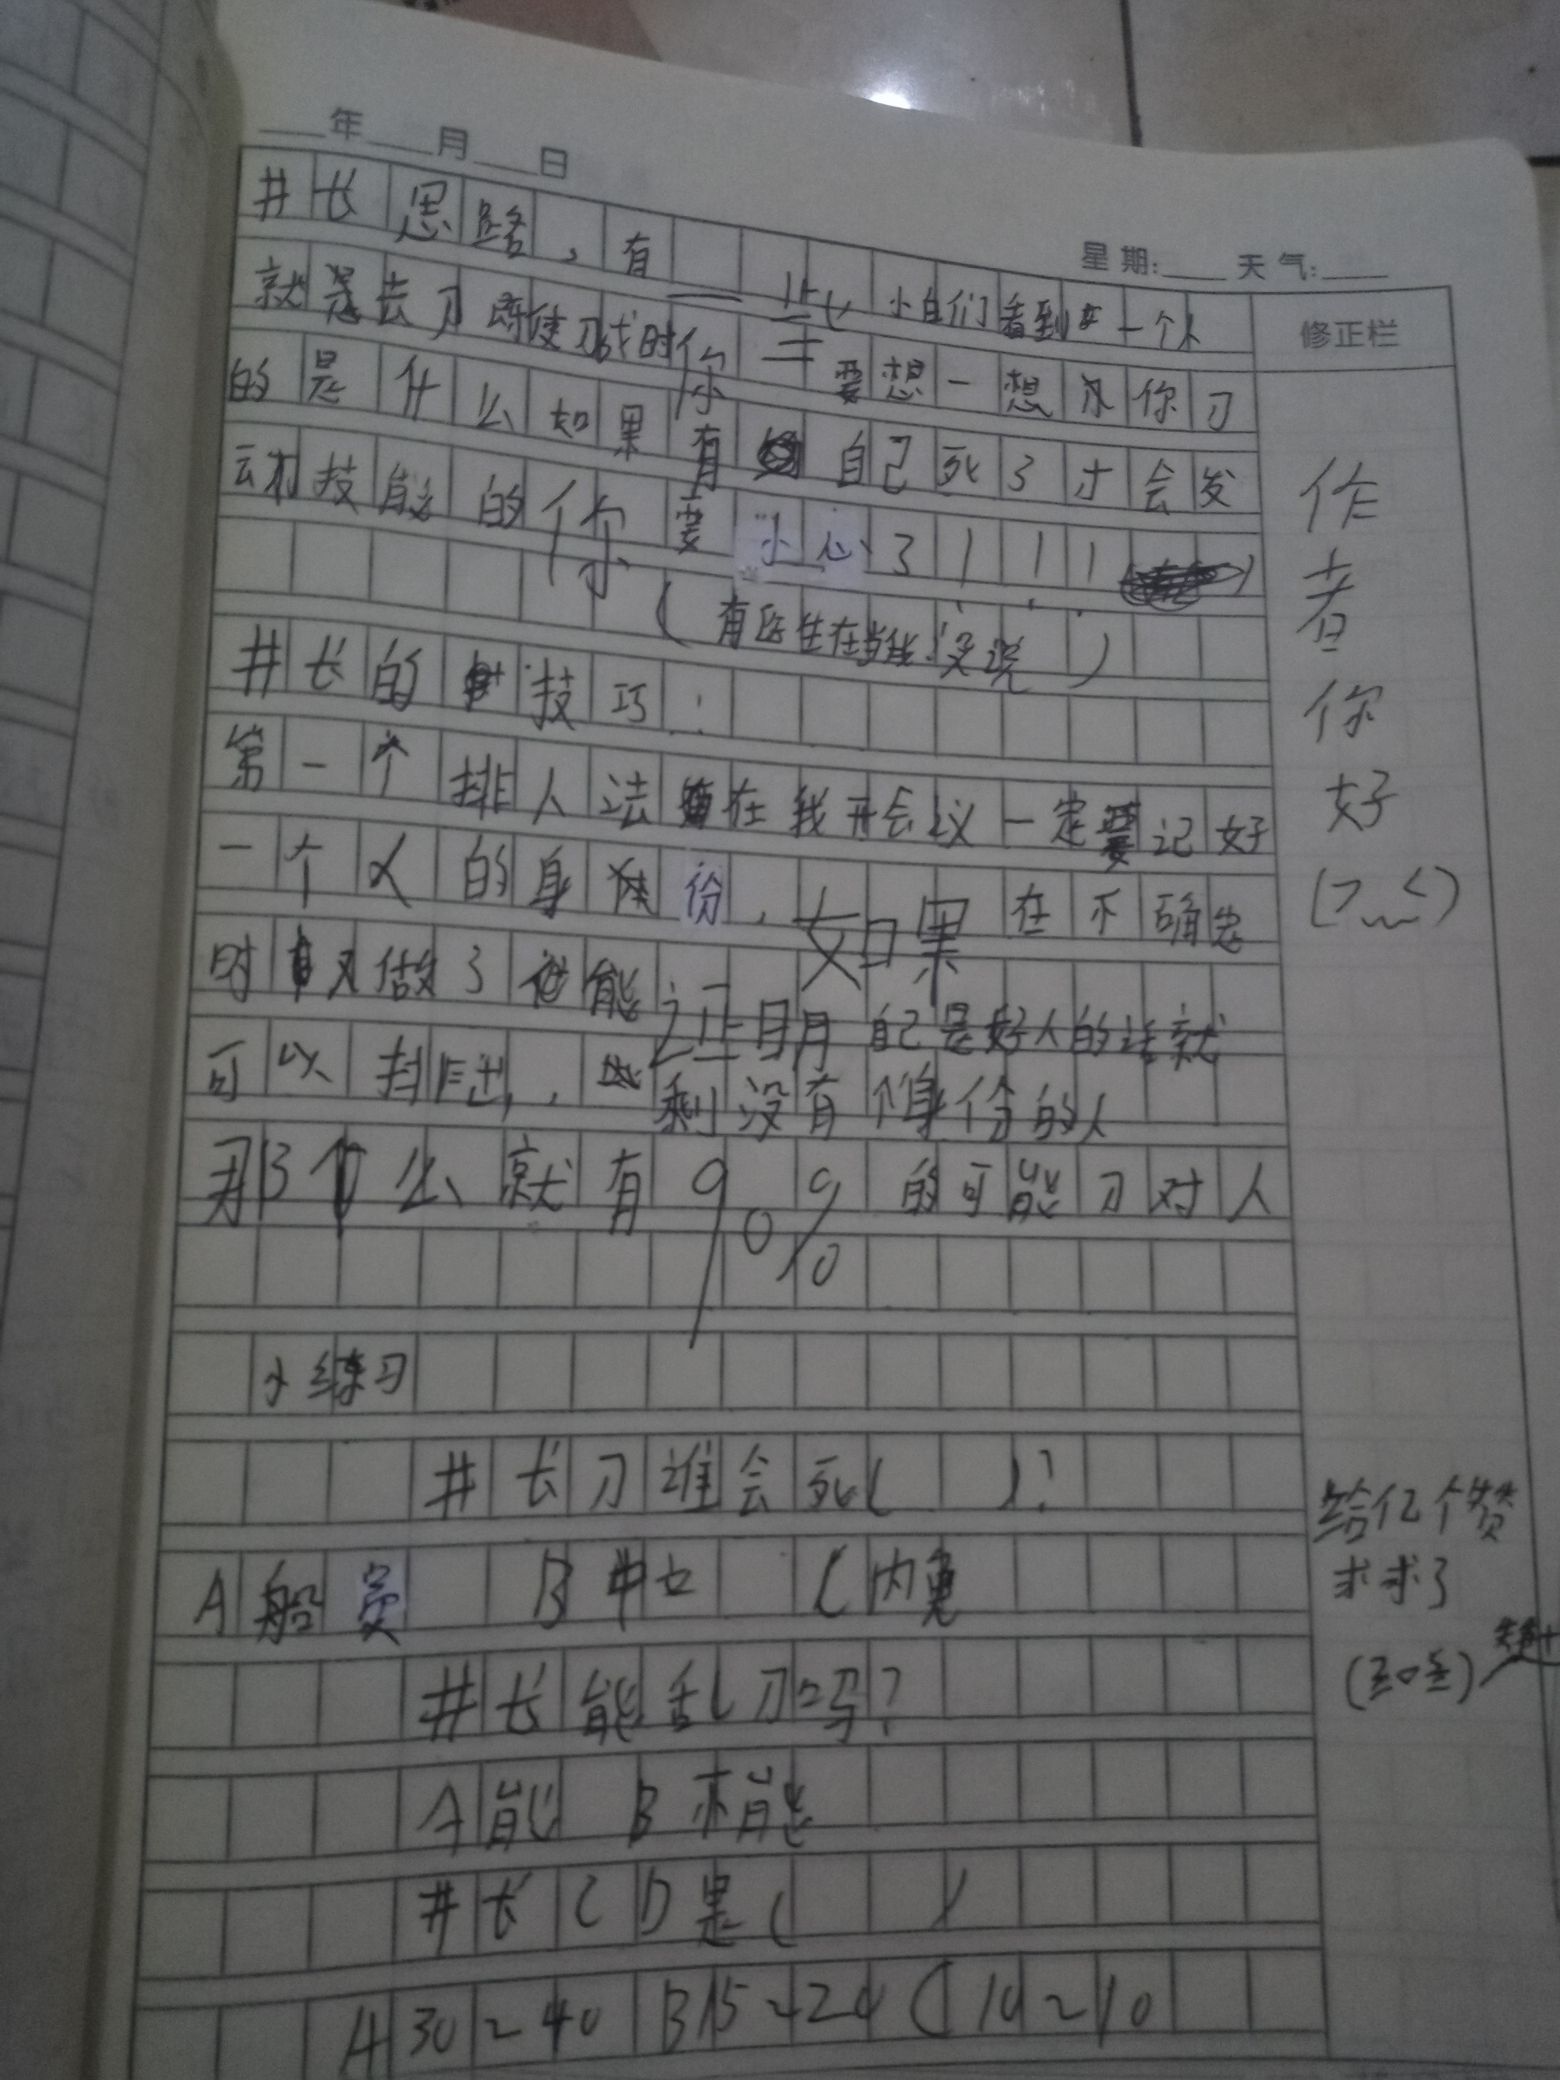 年 月 日
星期: 天气:
修正栏
井长思路,有一些小白们看到一个人
就是去刀 你要想一想 你刀
的是什么如果有自己死了才会发
动技能的你要小心了!!!
(有医生在当我没说)
井长的技巧:
第一个排人法在我开会议一定要记好
一个人的身份,如果在不确定
时 又做了 能证明自己是好人的话就
可以排除, 剩没有身份的人
那么就有90%的可能刀对人
小练习
井长刀谁会死( )?
A船员 B中立 C内鬼
井长能乱刀吗?
A能 B不能
井长CD是( )
A 30~40 B 15~24 C 10~10
作
者
你
好
给亿个赞
求求了